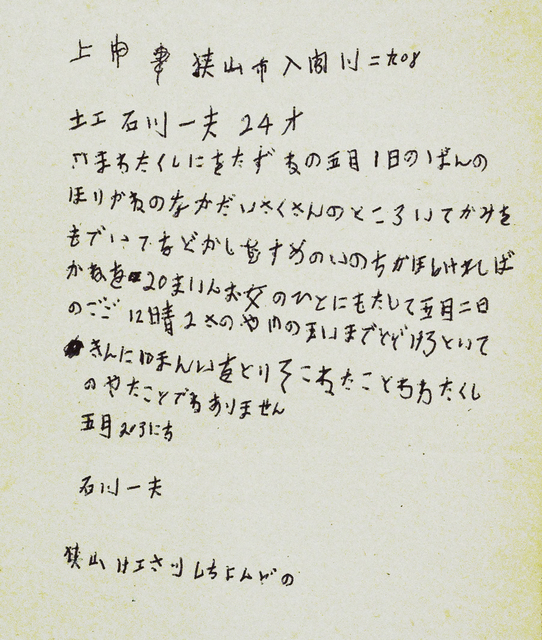 上申書 狭山市入間川二九〇8
土工 石川一夫 24才
はまちたくしにをたずねの五月1日のばんの
ほりかねのなかだいさくさんのところいてかみを
もでいてをどかしをすめのいのちがほしければ
かねを20まいんお女のひとにもたして五月二日
のごご12時2さのや山のまいまでとどけろといて
きんに10まんいをとりそこねたことちわたくし
のやたことでわありません
五月23にち
石川一夫
狭山けエさツしちよんどの